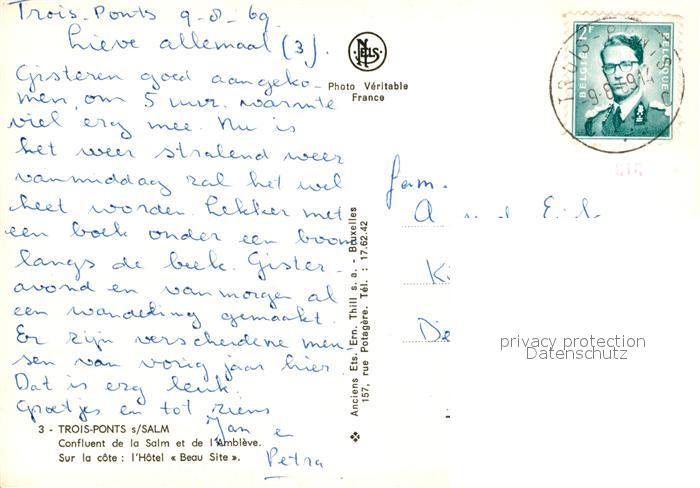 Trois-Ponts 9-8-69
Lieve allemaal (3).
Gisteren goed aangeko-
men, om 5 uur. warmte
viel erg mee. Nu is
het weer stralend weer
vanmiddag zal het wel
heet worden. Lekker met
een boek onder een boom
langs de beek. Gister-
avond en vanmorgen al
een wandeling gemaakt.
Er zijn verscheidene men-
sen van vorig jaar hier.
Dat is erg leuk.
Groetjes en tot ziens
Jan en
Petra
3 - TROIS-PONTS s/SALM
Confluent de la Salm et de l'Amblève.
Sur la côte : l'Hôtel « Beau Site ».
NELS
Photo Véritable
France
Anciens Ets. Ern. Thill s. a. - Bruxelles
157, rue Potagère. Tél. : 17.62.42
2F
BELGIE BELGIQUE
TROIS-
-9-8-
Fam.
A
K
De
privacy protection
Datenschutz